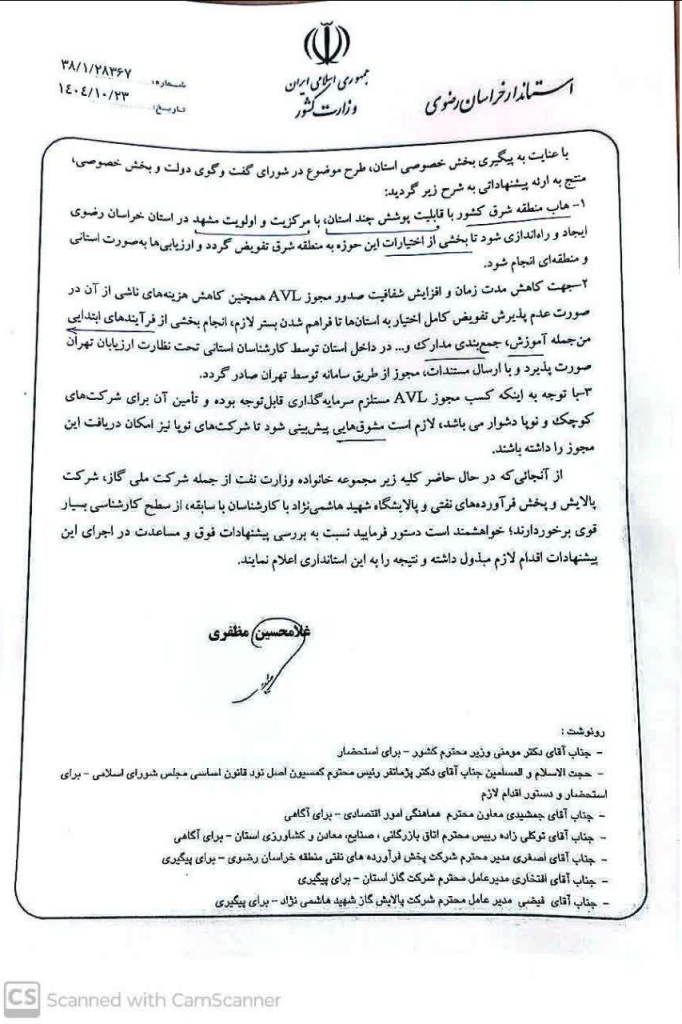 جمهوری اسلامی ایران
وزارت کشور
استاندار خراسان رضوی
شماره: ۳۸/۱/۲۸۳۶۷
تاریخ: ۱۴۰۴/۱۰/۲۳
با عنایت به پیگیری بخش خصوصی استان، طرح موضوع در شورای گفت وگوی دولت و بخش خصوصی،
منتج به ارئه پیشنهاداتی به شرح زیر گردید:
۱- هاب منطقه شرق کشور با قابلیت پوشش چند استان، با مرکزیت و اولویت مشهد در استان خراسان رضوی
ایجاد و راه‌اندازی شود تا بخشی از اختیارات این حوزه به منطقه شرق تفویض گردد و ارزیابی‌ها به‌صورت استانی
و منطقه‌ای انجام شود.
۲-جهت کاهش مدت زمان و افزایش شفافیت صدور مجوز AVL همچنین کاهش هزینه‌های ناشی از آن در
صورت عدم پذیرش تفویض کامل اختیار به استان‌ها تا فراهم شدن بستر لازم، انجام بخشی از فرآیندهای ابتدایی
من‌جمله آموزش، جمع‌بندی مدارک و... در داخل استان توسط کارشناسان استانی تحت نظارت ارزیابان تهران
صورت پذیرد و با ارسال مستندات، مجوز از طریق سامانه توسط تهران صادر گردد.
۳-با توجه به اینکه کسب مجوز AVL مستلزم سرمایه‌گذاری قابل‌توجه بوده و تأمین آن برای شرکت‌های
کوچک و نوپا دشوار می باشد، لازم است مشوق‌هایی پیش‌بینی شود تا شرکت‌های نوپا نیز امکان دریافت این
مجوز را داشته باشند.
از آنجائی‌که در حال حاضر کلیه زیر مجموعه خانواده وزارت نفت از جمله شرکت ملی گاز، شرکت
پالایش و پخش فرآورده‌های نفتی و پالایشگاه شهید هاشمی‌نژاد با کارشناسان با سابقه، از سطح کارشناسی بسیار
قوی برخوردارند؛ خواهشمند است دستور فرمایید نسبت به بررسی پیشنهادات فوق و مساعدت در اجرای این
پیشنهادات اقدام لازم مبذول داشته و نتیجه را به این استانداری اعلام نمایند.
غلامحسین مظفری
رونوشت :
- جناب آقای دکتر مومنی وزیر محترم کشور – برای استحضار
- حجت الاسلام و المسلمین جناب آقای دکتر پژمانفر رئیس محترم کمسیون اصل نود قانون اساسی مجلس شورای اسلامی – برای
استحضار و دستور اقدام لازم
- جناب آقای جمشیدی معاون محترم هماهنگی امور اقتصادی – برای آگاهی
- جناب آقای توکلی زاده رییس محترم اتاق بازرگانی ، صنایع، معادن و کشاورزی استان – برای آگاهی
- جناب آقای اصغری مدیر محترم شرکت پخش فرآورده های نفتی منطقه خراسان رضوی – برای پیگیری
- جناب آقای افتخاری مدیرعامل محترم شرکت گاز استان – برای پیگیری
- جناب آقای فیضی مدیر عامل محترم شرکت پالایش گاز شهید هاشمی نژاد – برای پیگیری
CS Scanned with CamScanner